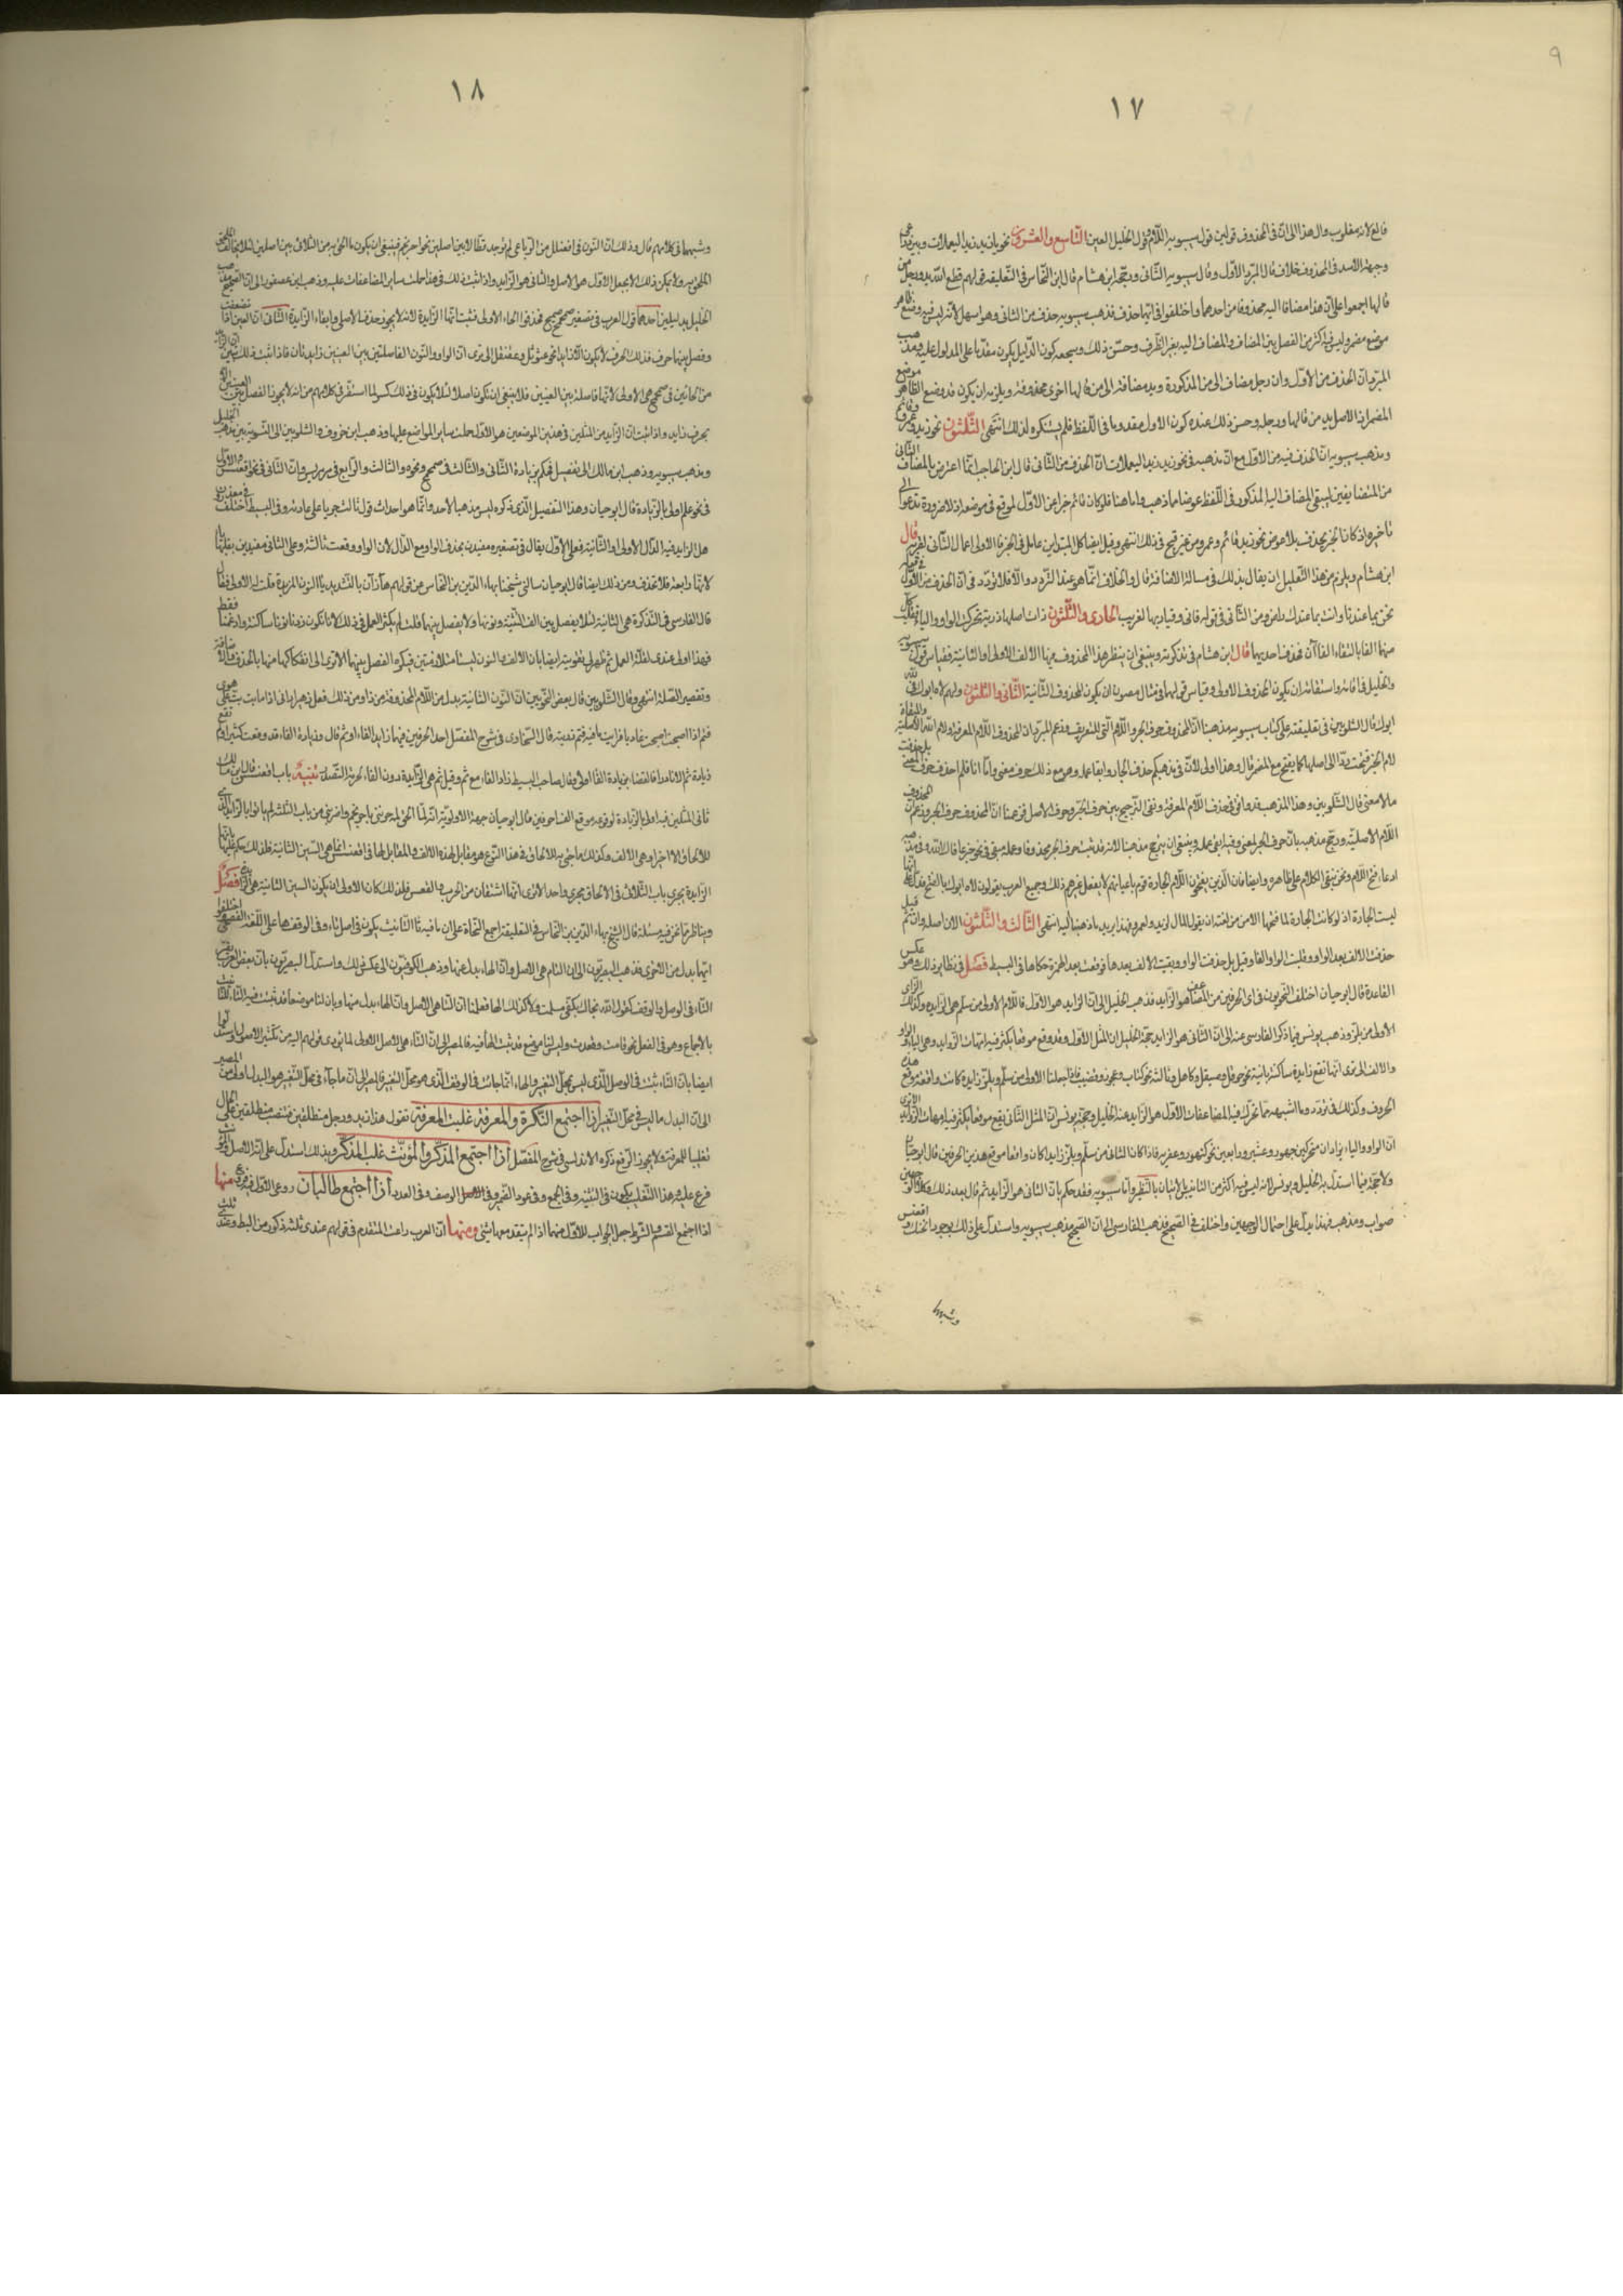 ٩
١٧
فالغ لانه مقلوب وال هذا الى ان في المحذوف قولين قول سيبويه اللام قول الخليل العين التاسع والعشرون نحو يا زيد زيد اليعملات وبين ذراعي
وجبهة الاسد في المحذوف خلاف قال المبرد الاول وقال سيبويه الثاني ورجحه ابن هشام قال ابن النحاس في التعليقة قولهم قطع الله يد ورجل من
قالها اجمعوا على ان هذا مضافا اليه محذوفا من احدهما واختلفوا في ايهما حذف فذهب سيبويه حذف من الثاني وهو اسهل لانه ليس فيه وضع ظاهر
موضع مضمر وليس فيه اكثر من الفصل بين المضاف والمضاف اليه بغير الظرف وحسن ذلك وشجعه كون الدليل يكون مقدما على المدلول عليه ومذهب
المبرد ان الحذف من الاول وان رجل مضاف الى من المذكورة ويد مضافة الى من قالها اخرى محذوفة ويلزمه ان يكون قد وضع الظاهر موضع
المضمر اذ الاصل يد من قالها ورجله وحسن ذلك عنده كون الاول معدوما في اللفظ فلم يستنكره لذلك انتهى الثلثون نحو زيد وعمرو قائم
ومذهب سيبويه ان الحذف فيه من الاول مع ان مذهبه في نحو زيد زيد اليعملات ان الحذف من الثاني قال ابن الحاجب انما اعترض بالمضاف الثاني
من المتضايفين ليبقى المضاف اليه المذكور في اللفظ عوضا مما ذهب واما هنا فلو كان قائم خبرا عن الاول لوقع في موضعه اذ لا ضرورة تدعو الى
تاخيره اذ كان الخبر يحذف بلا عوض نحو زيد قائم وعمرو من غير قبح في ذلك انتهى وقيل ايضا كل المبتداين عامل في الخبر فالاولى اعمال الثاني لقربه قال
ابن هشام ويلزم من هذا التعليل ان يقال بذلك في مسالة الاضافة قال والخلاف انما هو عند التردد والا فلا تردد في ان الحذف من الاول في قوله
نحن بما عندنا وانت بما عندك راض ومن الثاني في قوله فاني وقيار بها لغريب الحادي والثلثون ذات اصلها ذوية تحركت الواو والياء فقلبت كل
منهما الفا بالتقاء الفا ان فحذف احديهما قال ابن هشام في تذكرته وينبغي ان ينظر هذا المحذوف منهما الالف الاولى او الثانية فقياس قول سيبويه
والخليل في اقامة واستقامة ان يكون المحذوف الاولى وقياس قولهما في مثال مصون ان يكون المحذوف الثانية الثاني والثلثون ولهم لاه ابوك لله
ابوك قال الشلوبين في تعليقته على كتاب سيبويه مذهبنا ان المحذوف حرف الجر واللام التي للتعريف وزعم المبرد ان المحذوف اللام المعرفة ولام الله الاصلية والمبقاة
لام الجر فتحت ردا الى اصلها كما يفتح مع المضمر قال وهذا اولى لان في مذهبكم حذف الجار وابقاء عمله وهو مع ذلك حرف معنى واما انا فلم احذف حرف المعنى بل حذفت
ما لا معنى قال الشلوبين وهذا المذهب قد واتى في حذف اللام المعرفة وبقي الترجيح بين حرف الجر وحرف الاصل فزعمنا ان المحذوف حرف الجر وزعم ان المحذوف
اللام الاصلية ورجح مذهبه بان حرف الجر لمعنى وفيه ابقاء عمله وينبغي ان يرجح مذهبنا لانه قد ثبت حرف الجر محذوفا وعمله مبقى في نحو خير عافاك الله وفي مذهبه
ادعاء فتح اللام ونحن نبقي الكلام على ظاهره وايضا فان الذين يفتحون اللام الجارة قوم باعيانهم لا يفعل غيرهم ذلك وجميع العرب يقولون لاه ابوك بالفتح فدل انها
ليست الجارة اذ لو كانت الجارة لما فتحها الا من من لغته ان يقول المال لزيد ولعمرو فهذا يريد ما ذهبنا اليه انتهى الثالث والثلثون الان اصله اوان ثم قيل
حذفت الالف بعد الواو وقلبت الواو الفا وقيل بل حذفت الواو وبقيت الالف بعدها فوقعت بعد الهمزة حكاها في البسيط فصل في نظاير ذلك وهو عكس
القاعدة قال ابو حيان اختلف النحويون في اي الحرفين من المضاعف هو الزايد فذهب الخليل الى ان الزايد هو الاول فاللام الاولى من سلم هي الزايدة وكذلك الزاي
الاولى من بلز وذهب يونس فيما ذكر الفارسي عنه الى ان الثاني هو الزايد حجة الخليل ان المثل الاول وقع موقعا يكثر فيه امهات الزوايد وهي الياء والواو
والالف الا ترى انها تقع زايدة ساكنة ثانية نحو حوقل وصيقل وكاهل وثالثة نحو كتاب وعجوز وقضيب فاذا جعلنا الاولى من سلم وبلز زايدة كانت واقعة موقع هذه
الحروف وكذلك في تردد وما اشبهه مما تحرك فيه المضاعفات الاول هو الزايد عند الخليل وحجة يونس ان المثل الثاني يقع موقعا يكثر فيه امهات الزوايد الا ترى
ان الواو والياء يزادان متحركين جهور وعثير ورابعين نحو كنهور وعفرية فاذا كان الثاني من سلم وبلز زايدا كان واقعا موقع هذين الحرفين قال ابو حيان
ولا حجة فيما استدل به الخليل ويونس لانه ليس فيه اكثر من التانيس بالاتيان بالنظير واما سيبويه فقد حكم بان الثاني هو الزايد ثم قال بعد ذلك وكلا الوجهين
صواب ومذهب فهذا يدل على احتمال الوجهين واختلف في الصحيح فذهب الفارسي الى ان الصحيح مذهب سيبويه واستدل على ذلك بوجود اقعنسس
وشبهها
١٨
وشبهها في كلامهم قال وذلك ان النون في افعنلل من الرباعي لم توجد قط الا بين اصلين نحو احرنجم فينبغي ان يكون ما الحق به من الثلاثي بين اصلين لئلا يخالف الملحق
الملحق به ولا يمكن ذلك الا بجعل الاول هو الاصل والثاني هو الزايد واذا ثبت ذلك في هذا حملت ساير المضاعفات عليه وذهب ابن عصفور الى ان الصحيح مذهب
الخليل بدليلين احدهما قول العرب في تصغير صمحمح صميمح فحذفوا الحاء الاولى فثبت انها الزايدة لانه لا يجوز حذف الاصلي وابقاء الزايدة الثاني ان العين اذا تضعفت
وفصل بينهما حرف فذلك الحرف لا يكون الا زايدا نحو عثوثل وعقنقل الا ترى ان الواو والنون الفاصلتين بين العينين زايدتان فاذا ثبت ذلك تبين ان الزايد
من الحائين في صمحمح هي الاولى لانها فاصلة بين العينين فلا ينبغي ان تكون اصلا لئلا يكون في ذلك كسر لما استقر في كلامهم من انه لا يجوز الفصل بين العينين الا
بحرف زايد واذا ثبت ان الزايد من المثلين في هذين الموضعين هو الاول حملت ساير المواضع عليهما وذهب ابن خروف والشلوبين الى التسوية بين مذهب الخليل
ومذهب سيبويه وذهب ابن مالك الى تفصيل فحكم بزيادة الثاني والثالث في صمحمح ونحوه والثالث والرابع في مرمريس وان الثاني في نحو اقعنسس والاول
في نحو علم اولى بالزيادة قال ابو حيان وهذا التفصيل الذي ذكره ليس مذهبا لاحد وانما هو احداث قول ثالث جريا على عادته وفي البسيط اختلف في مغدودن
هل الزايد فيه الدال الاولى او الثانية فعلى الاول يقال في تصغيره مغيدن بحذف الواو مع الدال لان الواو وقعت ثالثة وعلى الثاني مغيدين بقلبها يا
لانها رابعة فلا تحذف ومن ذلك ايضا قال ابو حيان سالني شيخنا بهاء الدين بن النحاس عن قولهم هذان بالتشديد ما النون المزيدة قلت له الاولى فقال
قال الفارسي في التذكرة هي الثانية لئلا يفصل بين الف التثنية ونونها ولا يفصل بينهما قلت لم يكثر العمل في ذلك لانا نكون زدنا نونا ساكنة وادغمنا فقط
فهذا اولى عندي لقلة العمل ثم ظهر لي تقويته ايضا بان الالف والنون ليستا متلازمتين فيكره الفصل بينهما الا ترى الى انفكاكها منها بالحذف للاضافة
وتقصير الصلة انتهى وقال الشلوبين قال بعض النحويين ان النون الثانية بدل من اللام المحذوفة من ذا ومن ذلك فعل زهير اراني اذا ما بت بت على هوى
فثم اذا اصبحت اصبحت غاديا فرايت ما فيه فثم ندمته قال السخاوي في شرح المفصل احد الحرفين فيهما زايد الفاء او ثم قال وزيادة الفاء قد وقعت كثيرا ولم تقع
زيادة ثم الا نادرا فالقضاء بزيادة الفا اولى وقال صاحب البسيط زاد الفاء مع ثم وقيل ثم هي الزايدة دون الفاء لحرمة التصدر تنبيه باب اقعنسس قال ابن مالك
ثاني المثلين فيه اولى بالزيادة لوقوعه موقع الف احرنبى قال ابو حيان جهة الاولوية انه لما الحق احرنبى باحرنجم واحرنبى من باب الثلثة لم ياتوا بالزايد الذي
للالحاق الا اخرا وهي الالف وكذلك ما جيء به للالحاق في هذا النوع هو مقابل لهذه الالف والمقابل لها في اقعنسس انما هي السين الثانية فلذلك حكم عليها بانها
الزايدة يجري باب الثلاثي في الالحاق مجرى واحدا الا ترى انهما اشتقان من الحرب والقعس فلذلك كان الاولى ان يكون السين الثانية هي الزايدة فصل
ويناظر ما نحن فيه مسئلة قال الشيخ بهاء الدين بن النحاس في التعليقة اجمع النحاة على ان ما فيه تا التانيث يكون في الوصل تاء وفي الوقف هاء على اللغة الفصحى اختلفوا
ايهما بدل من الاخرى فذهب البصريون الى ان التا هي الاصل وان الهاء بدل عنها وذهب الكوفيون الى عكس ذلك واستدل البصريون بان بعض العرب يقر
التاء في الوصل والوقف كقوله الله نجاك بكفي مسلمت ولا كذلك الها فعلمنا ان التا هي الاصل وان الهاء بدل منها وبان لنا موضعا قد ثبتت فيه التاء
بالاجماع وهو في الفعل نحو قامت وقعدت وليس لنا موضع قد ثبتت الهاء فيه فالمصير الى ان التاء هي الاصل اولى لما يؤدي قولهم اليه من تكثير الاصول واستدلوا
ايضا بان التاء ثبتت في الوصل الذي ليس بمحل التغيير والهاء انما جاءت في الوقف الذي هو محل التغيير فالمصير الى ان ما جاء في محل التغيير هو البدل اولى من المصير
الى ان البدل ما ليس في محل التغيير اذا اجتمع النكرة والمعرفة غلبت المعرفة تقول هذا زيد ورجل منطلقين فتنصب منطلقين على الحال
تغليبا للمعرفة ولا يجوز الرفع ذكره الاندلسي في شرح المفصل اذا اجتمع المذكر والمؤنث غلب المذكر وبذلك استدل على انه الاصل والمؤنث
فرع عليه وهذا التغليب يكون في التثنية وفي الجمع وفي عود الضمير وفي الوصف وفي العدد اذا اجتمع طالبان روعي الاول فيه فروع منها
اذا اجتمع القسم والشرط جعل الجواب للاول منهما اذا لم يتقدمهما شيء ومنها ان العرب راعت المتقدم في قولهم عندي ثلثة ذكور من البط وعندي ثلث